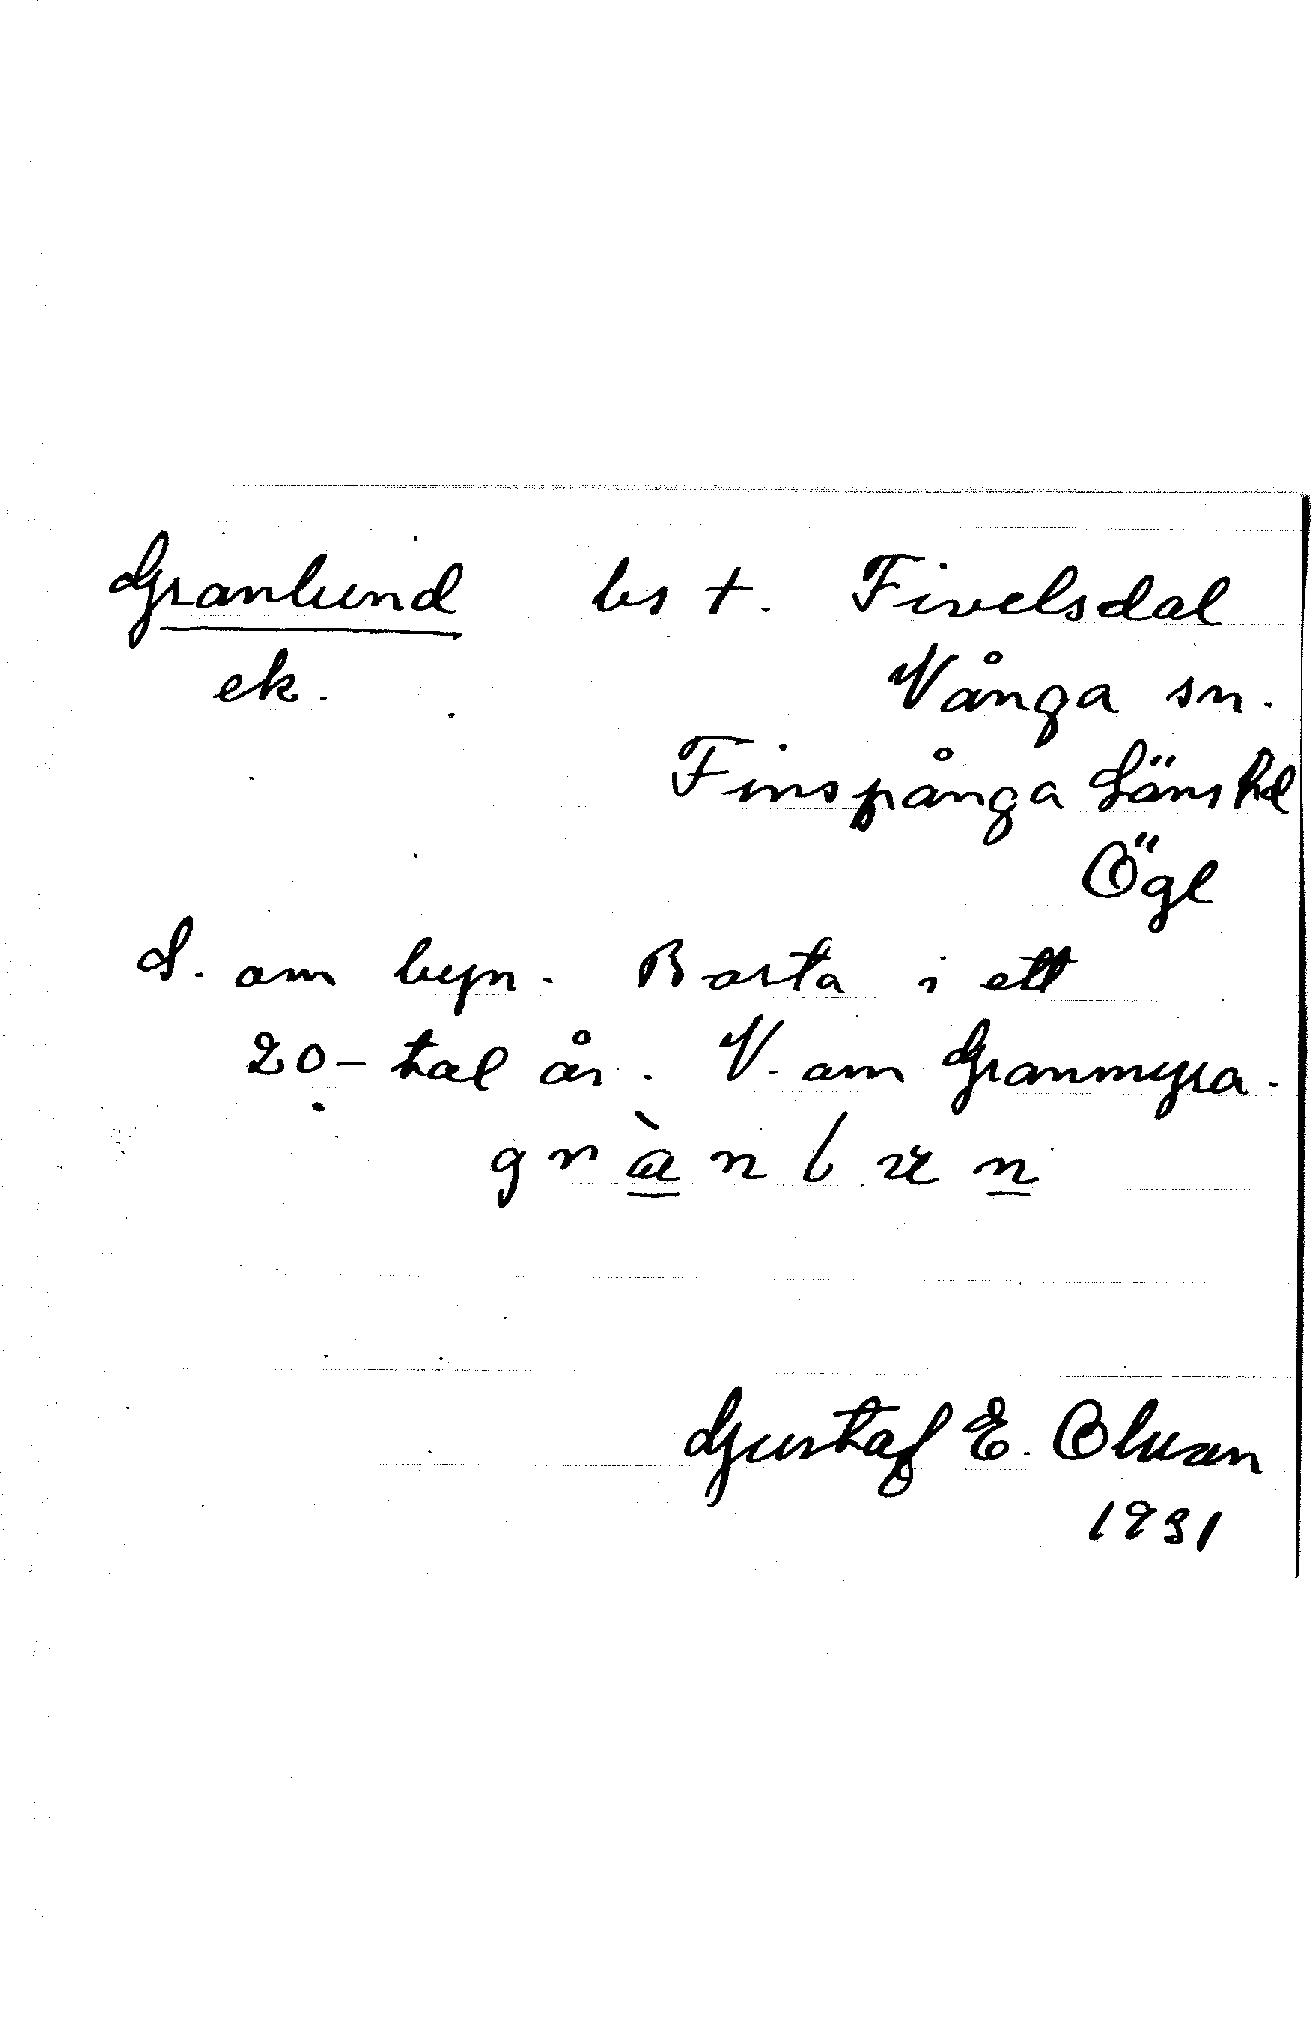 Granlund bs †. Fivelsdal
ek. Vånga sn.
Finspånga Läns hd
Ögl
S. om byn. Borta i ett
20-tal år. V. om Granmyra.
grànlun
Gustaf E. Olsson
1931